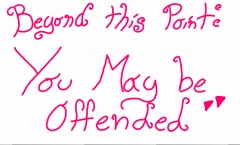 Beyond this Point:
You May be
Offended "